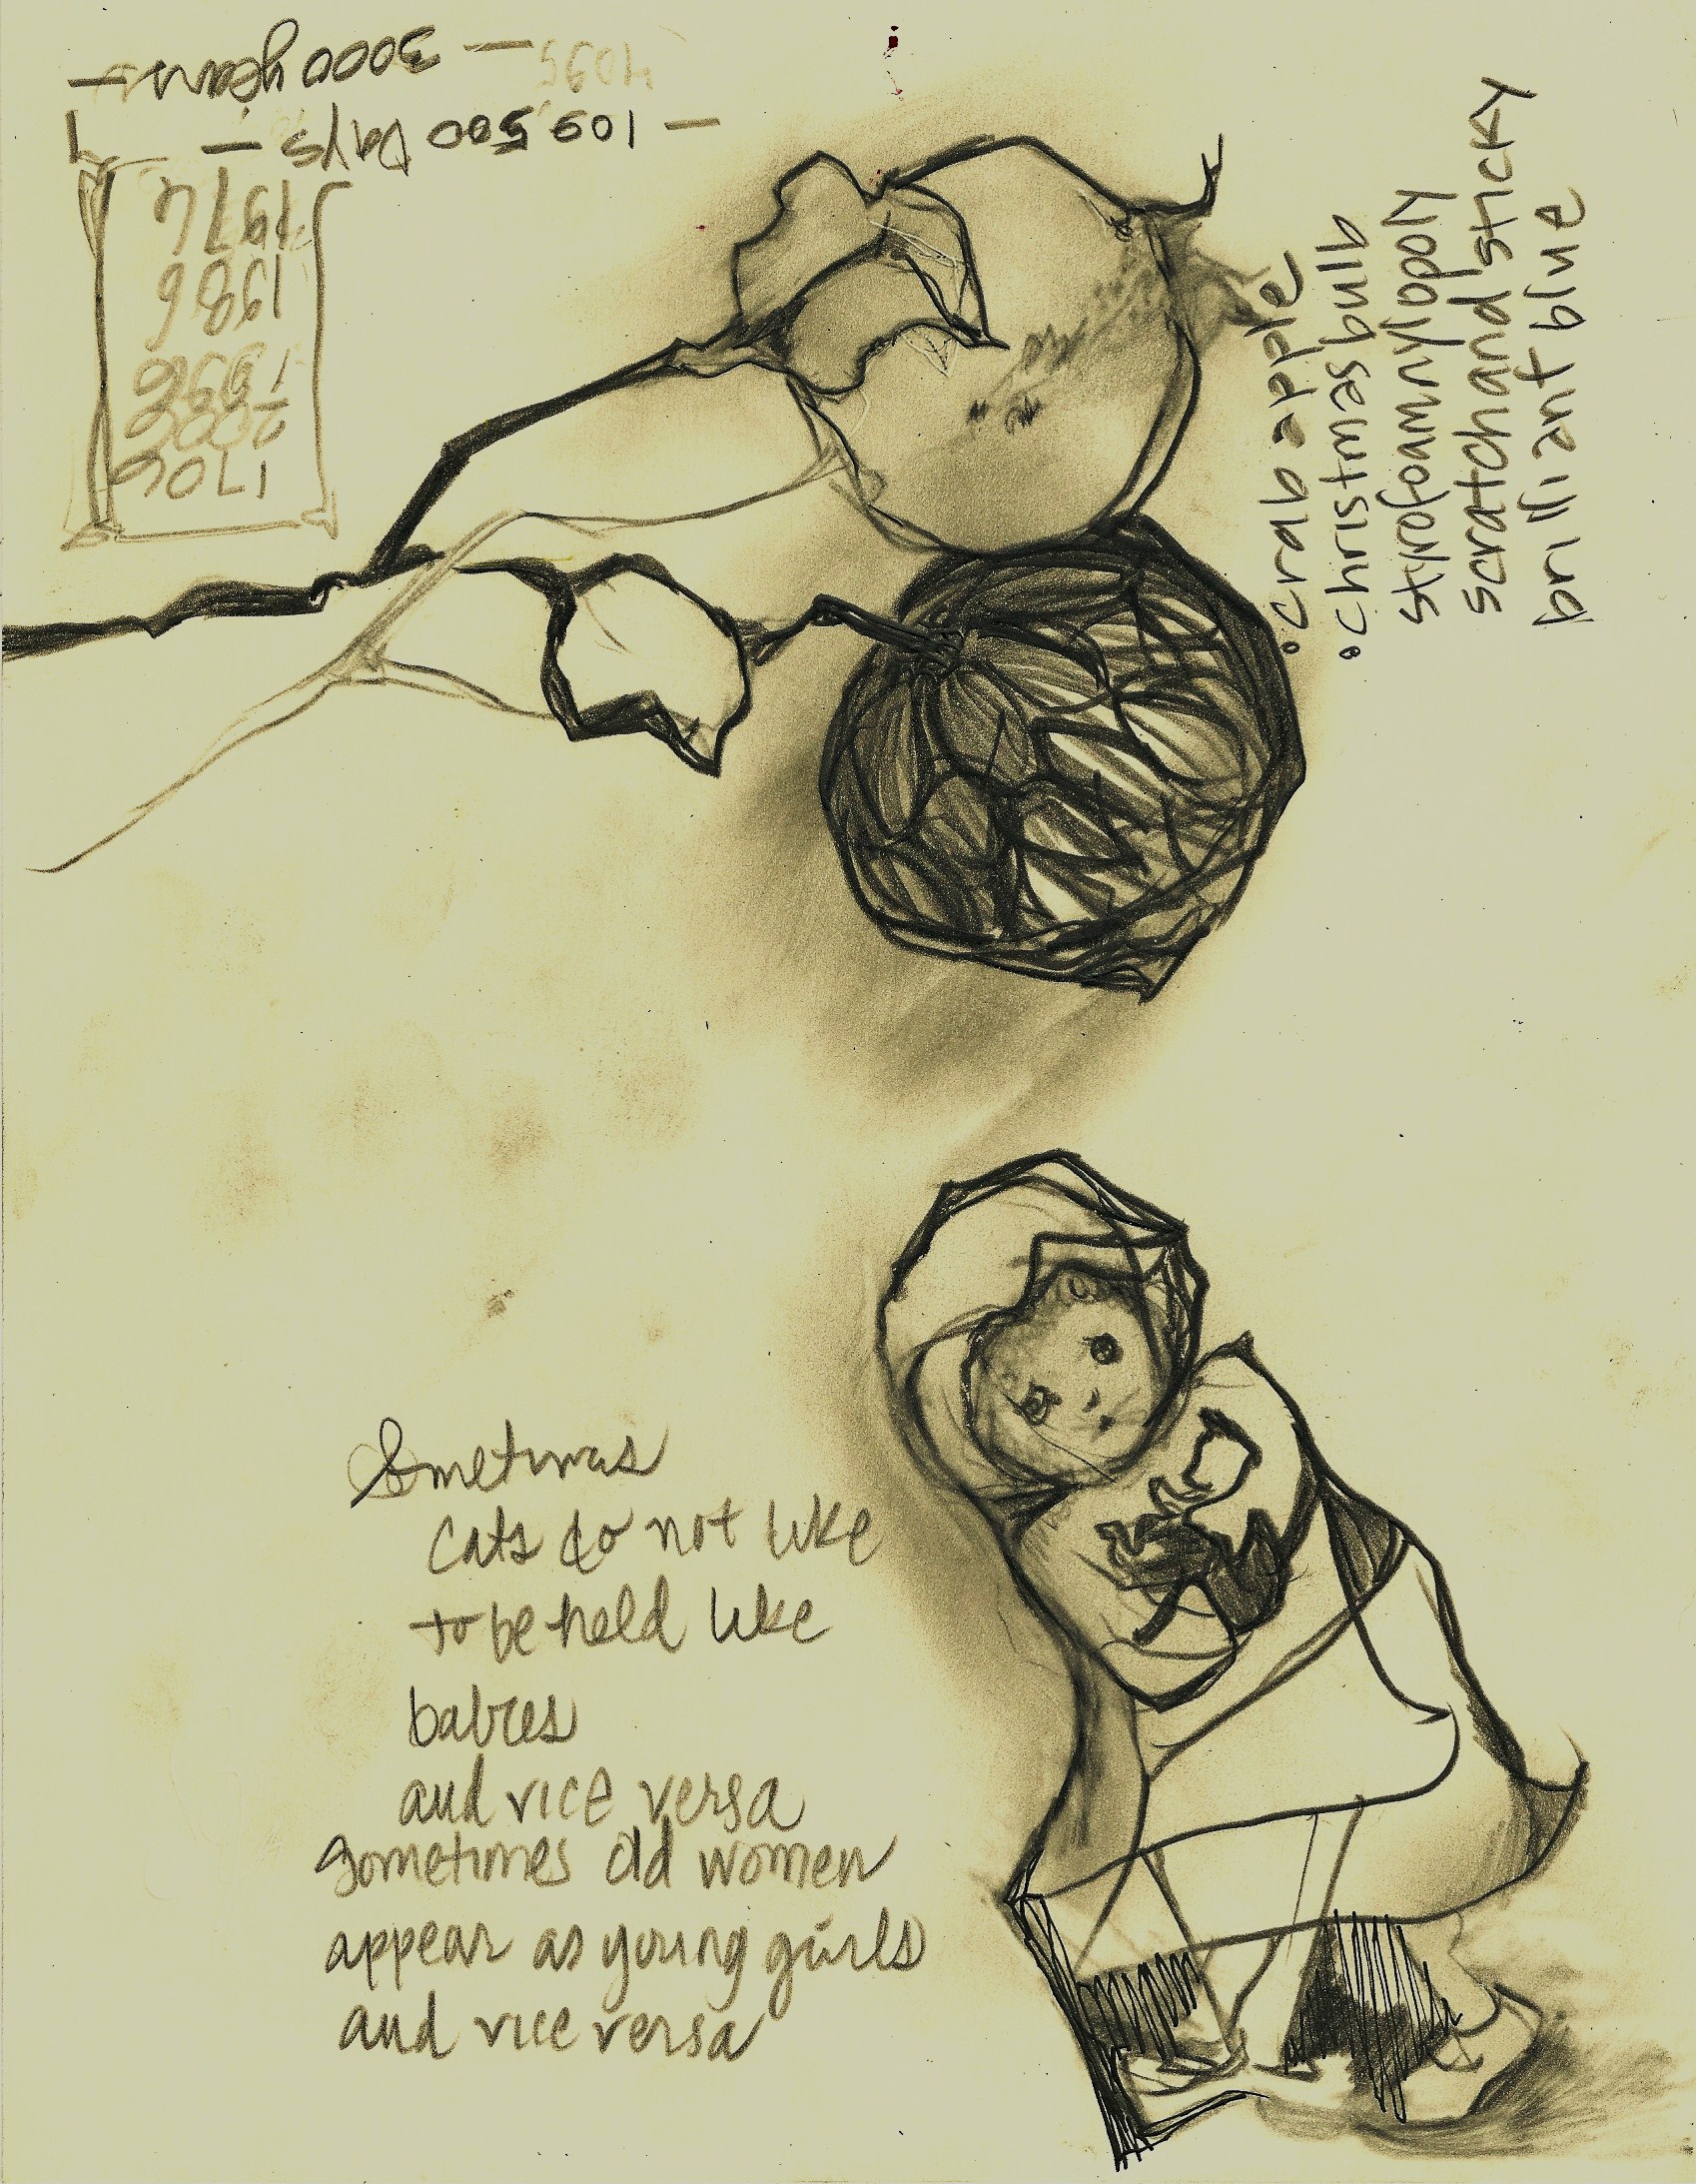 1706
2006
1996
1986
1976
— 109,500 Days —
— 3000 years —
°crab apple
°christmas bulb
styrofoamnylopoly
scratch and sticky
brilliant blue
Sometimes
cats do not like
to be held like
babies
and vice versa
Sometimes old women
appear as young girls
and vice versa